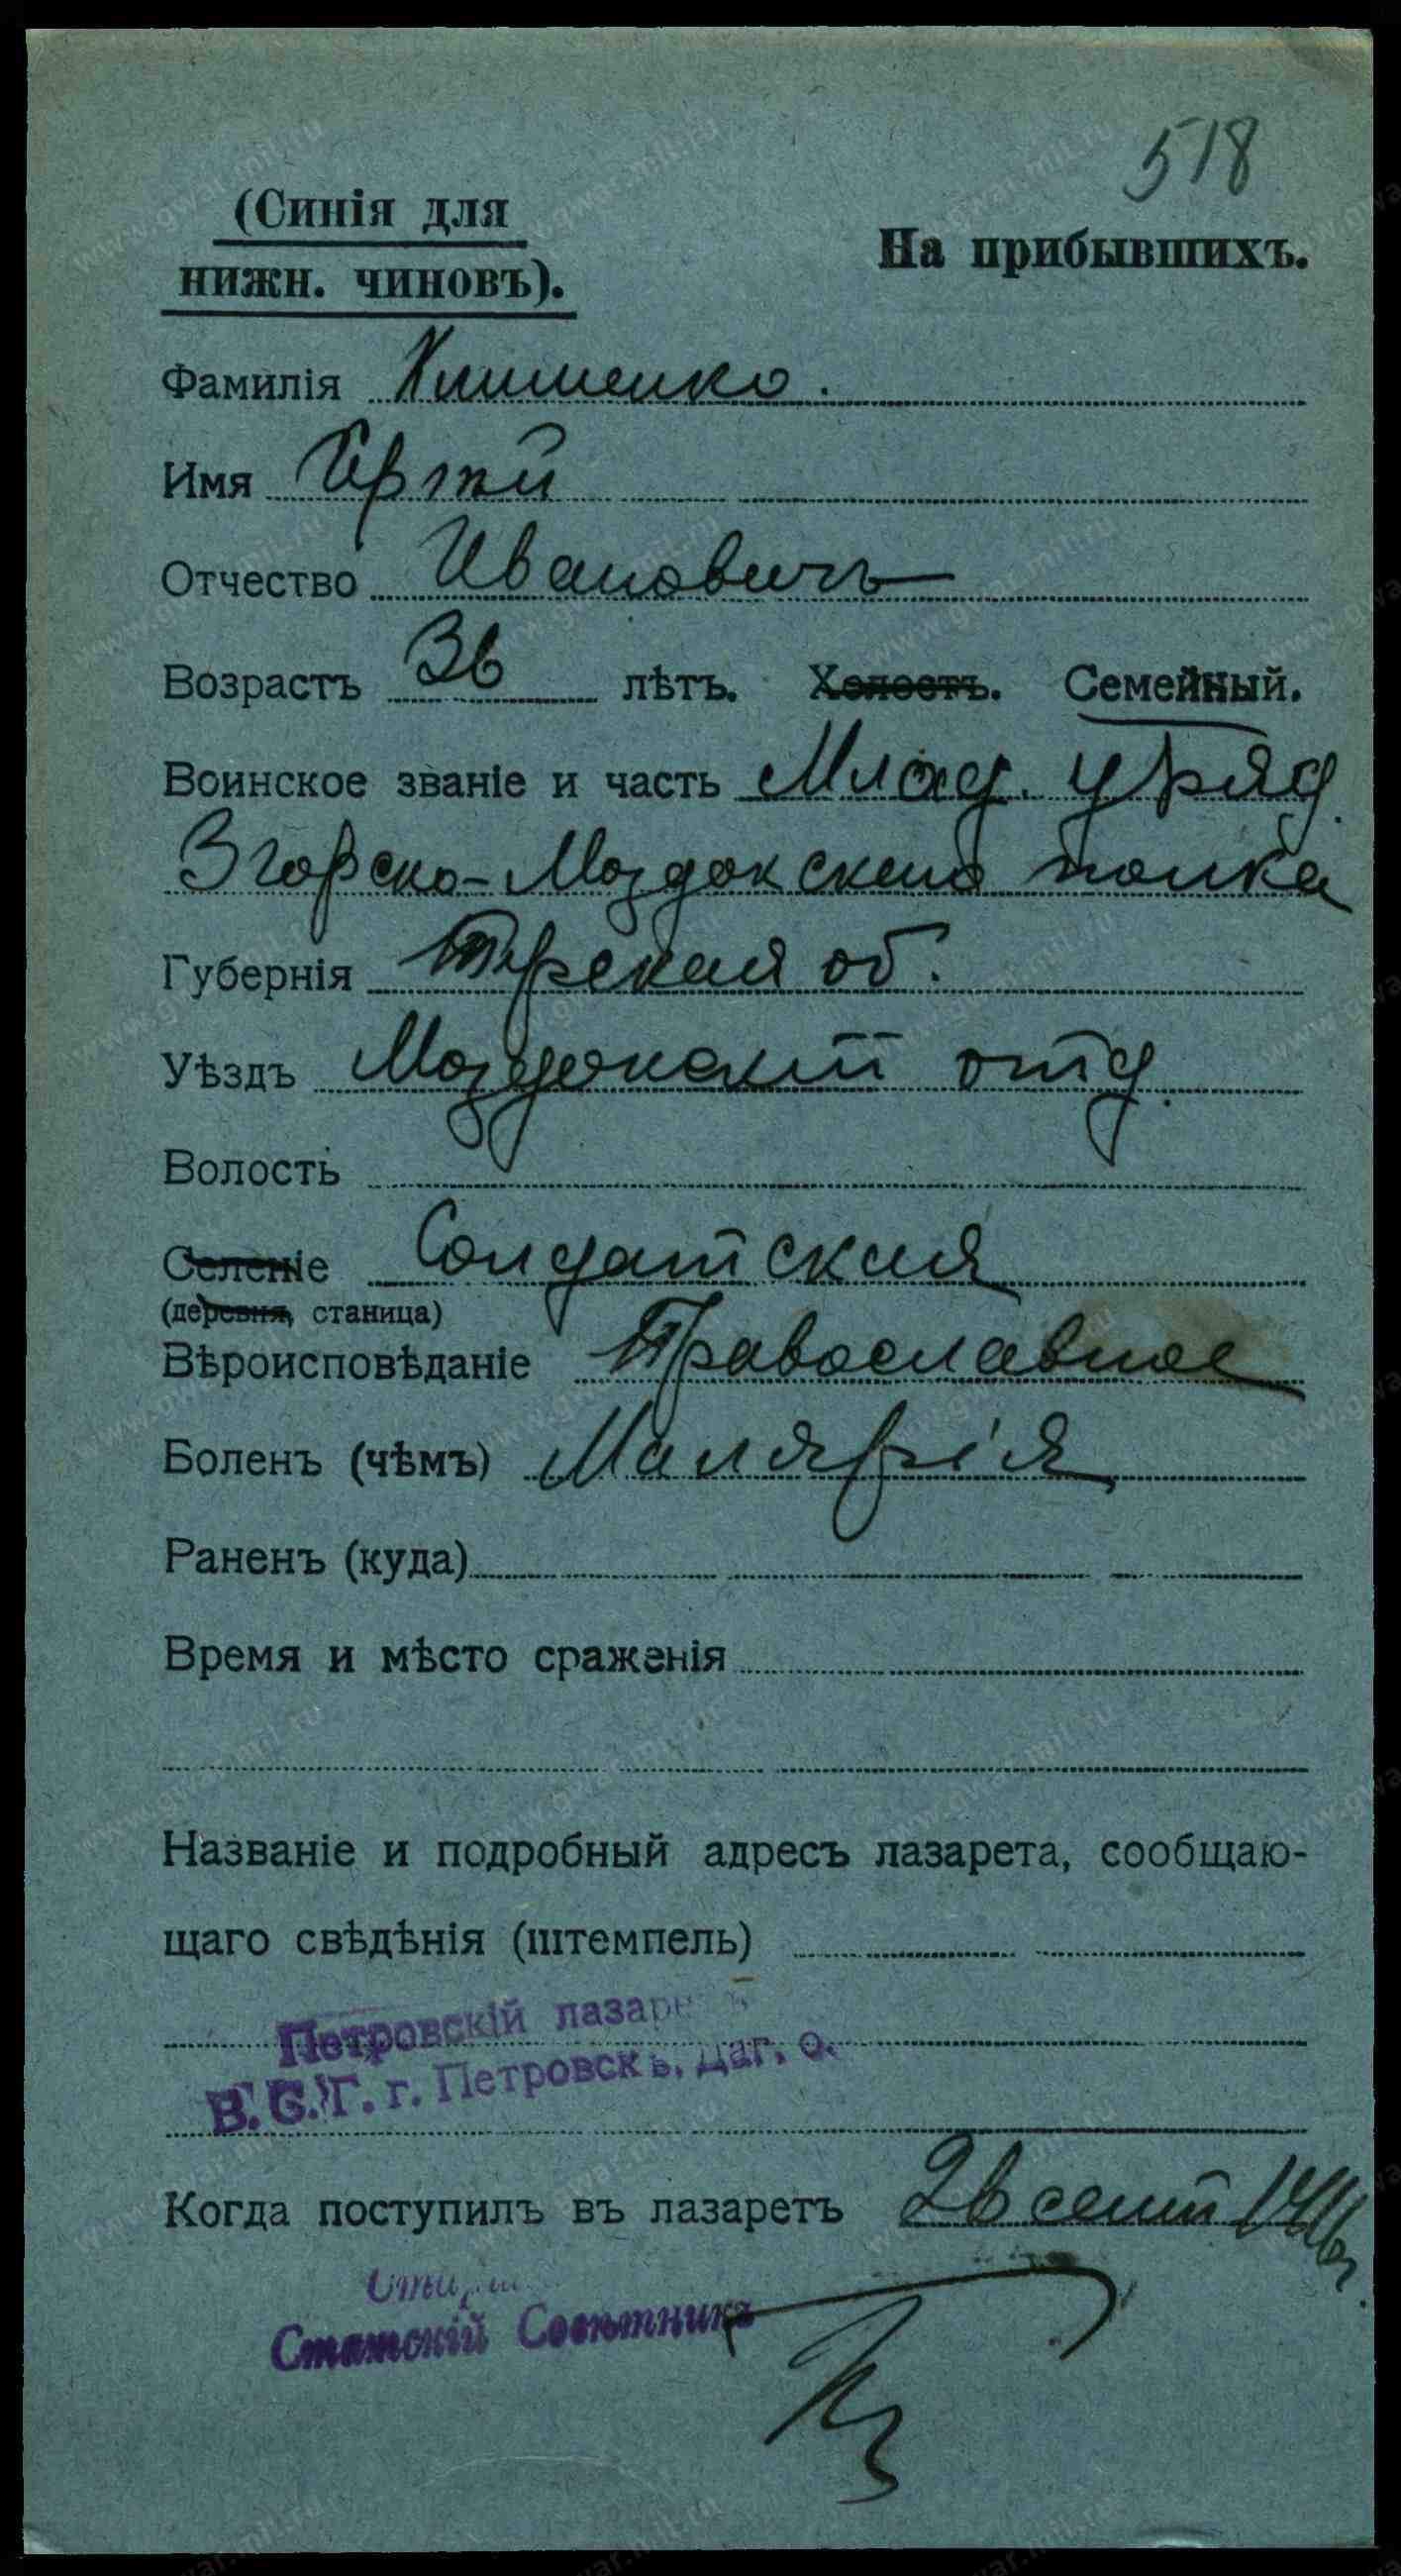 518
(Синія для
нижн. чиновъ).
На прибывшихъ.
Фамилія Клименко.
Имя
Отчество Ивановичъ
Возрастъ 36 лѣтъ. Холостъ. Семейный.
Воинское званіе и часть Млад. уряд.
3 горско-Моздокскаго полка
Губернія Терская об.
Уѣздъ Моздокскій отд.
Волость
Селеніе Солдатская
(деревня, станица)
Вѣроисповѣданіе Православное
Боленъ (чѣмъ) Малярія
Раненъ (куда)
Время и мѣсто сраженія
Названіе и подробный адресъ лазарета, сообщаю-
щаго свѣдѣнія (штемпель)
Петровскій лазаретъ
В. С. Г. г. Петровскъ, Даг. о.
Когда поступилъ въ лазаретъ 26 сент
Статскій Совѣтникъ